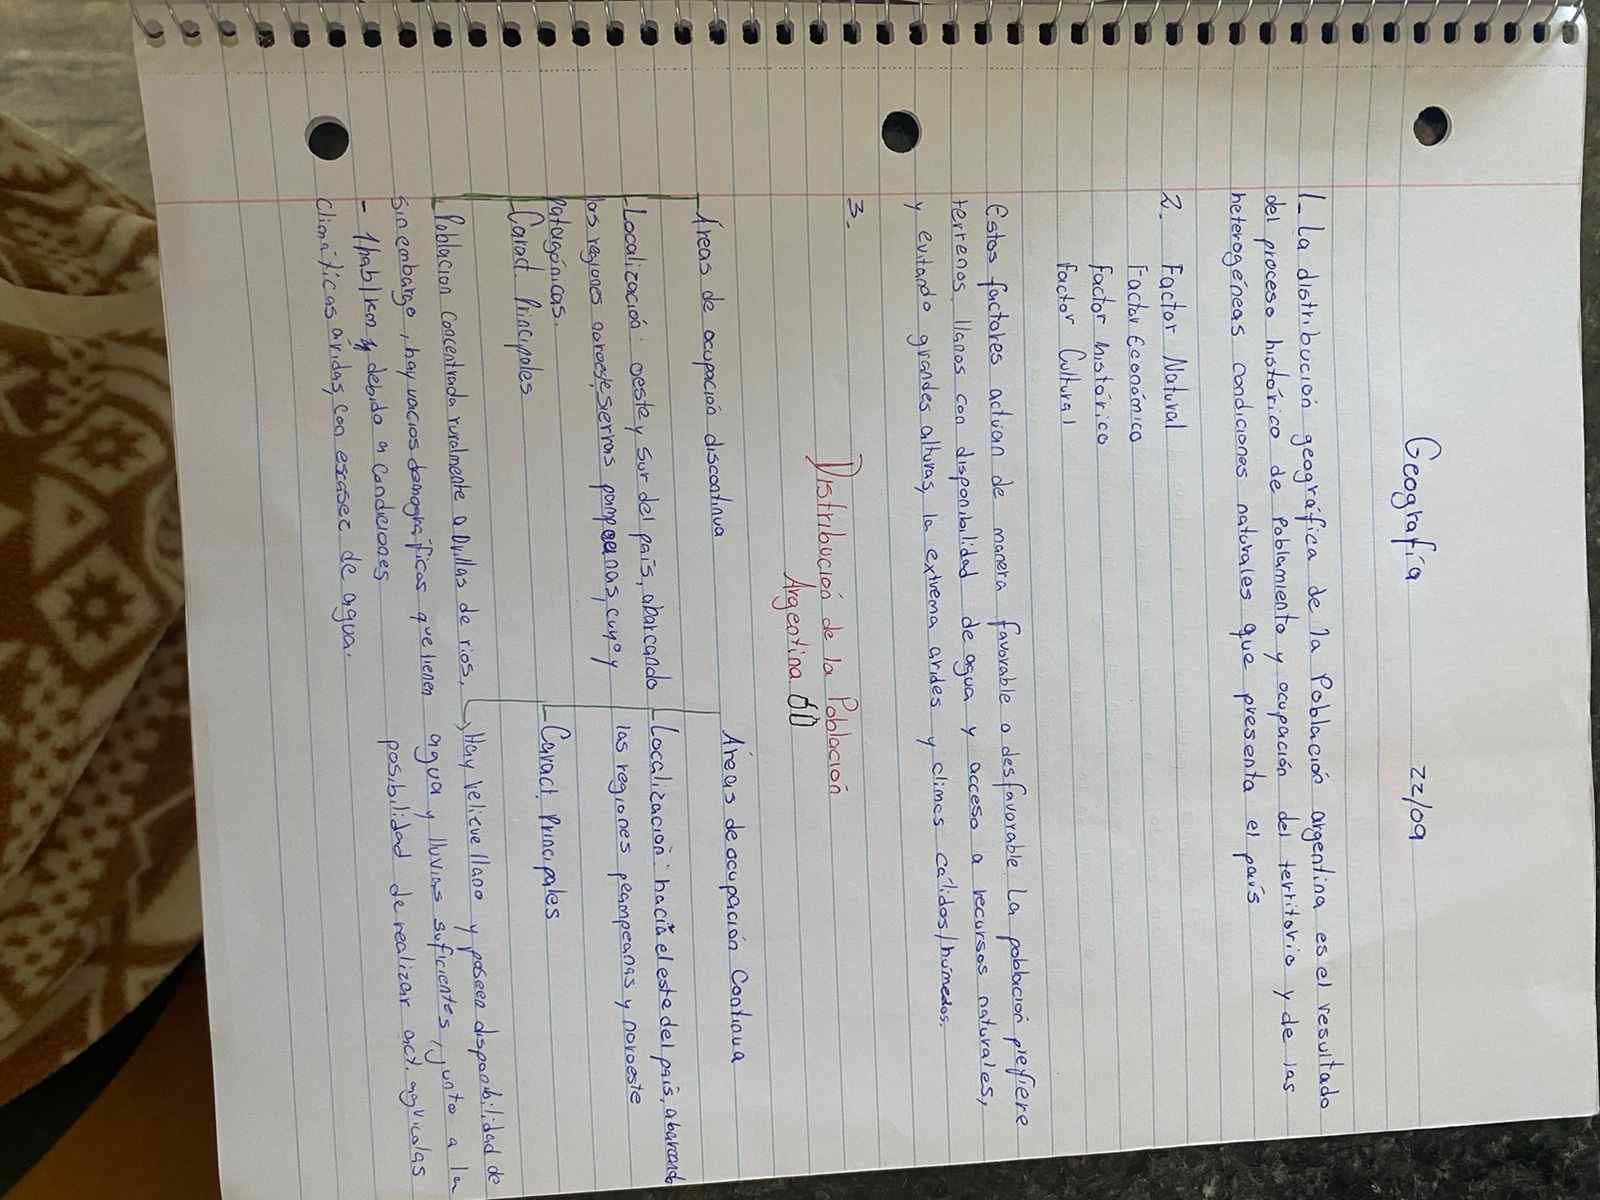 Geografía 22/09
1_ La distribución geográfica de la Población argentina es el resultado
del proceso histórico de Poblamiento y ocupación del territorio y de las
heterogéneas condiciones naturales que presenta el país
2. Factor Natural
Factor Económico
Factor histórico
Factor Cultural
Estos factores actuan de manera favorable o desfavorable. La población prefiere
terrenos llanos con disponibilidad de agua y acceso a recursos naturales,
y evitando grandes alturas, la extrema arides y climas cálidos/húmedos.
3.
Distribución de la Población
Argentina
Áreas de ocupación discontinua
Localización: oeste y sur del país, abarcando
las regiones noroeste, sierras pampeanas, cuyo y
patagónicas.
Caract Principales
Poblacion concentrada ruralmente a orillas de rios,
sin embargo, hay vacios demográficos que tienen
- 1 hab/km y debido a condiciones
climáticas aridas, con escasez de agua.
Áreas de ocupación Continua
Localización: hacia el este del país, abarcando
las regiones peampeanas y noroeste
Caract. Principales
Hay relieve llano y poseen disponibilidad de
agua y lluvias suficientes, junto a la
posibilidad de realizar act. agricolas